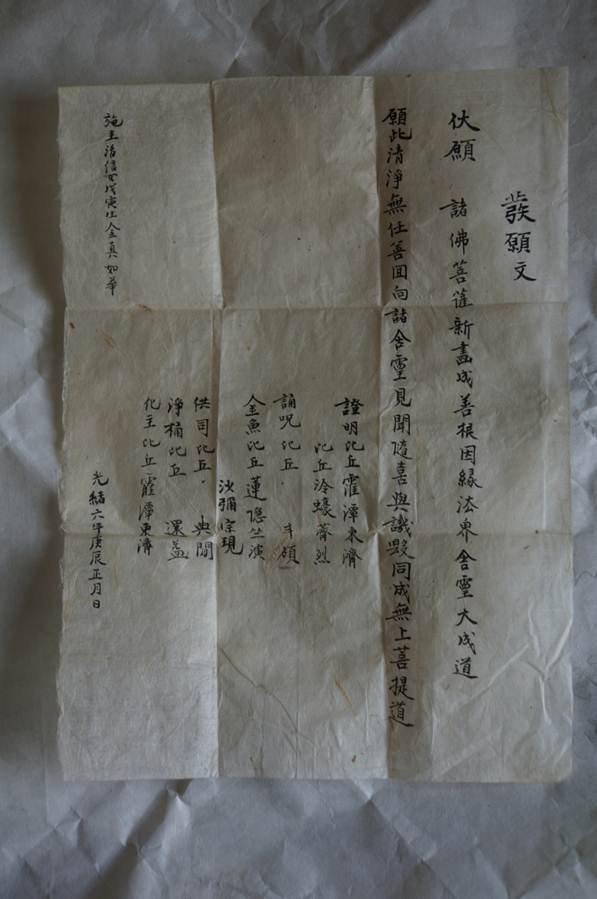 發願文
伏願 諸佛菩薩新畵成善提因緣法界含靈大成道
願此清淨無任善回向諸含靈見聞隨喜與譏毀同成無上菩提道
證明比丘霍潭東濟
比丘泠蠔蒼烈
誦呪比丘
金魚比丘蓮隱竺演
沙彌宗現
供司比丘 典閒
淨桶比丘 還益
化主比丘霍潭東濟
施主清信女戊寅生金真如華
光緒六年庚辰正月日